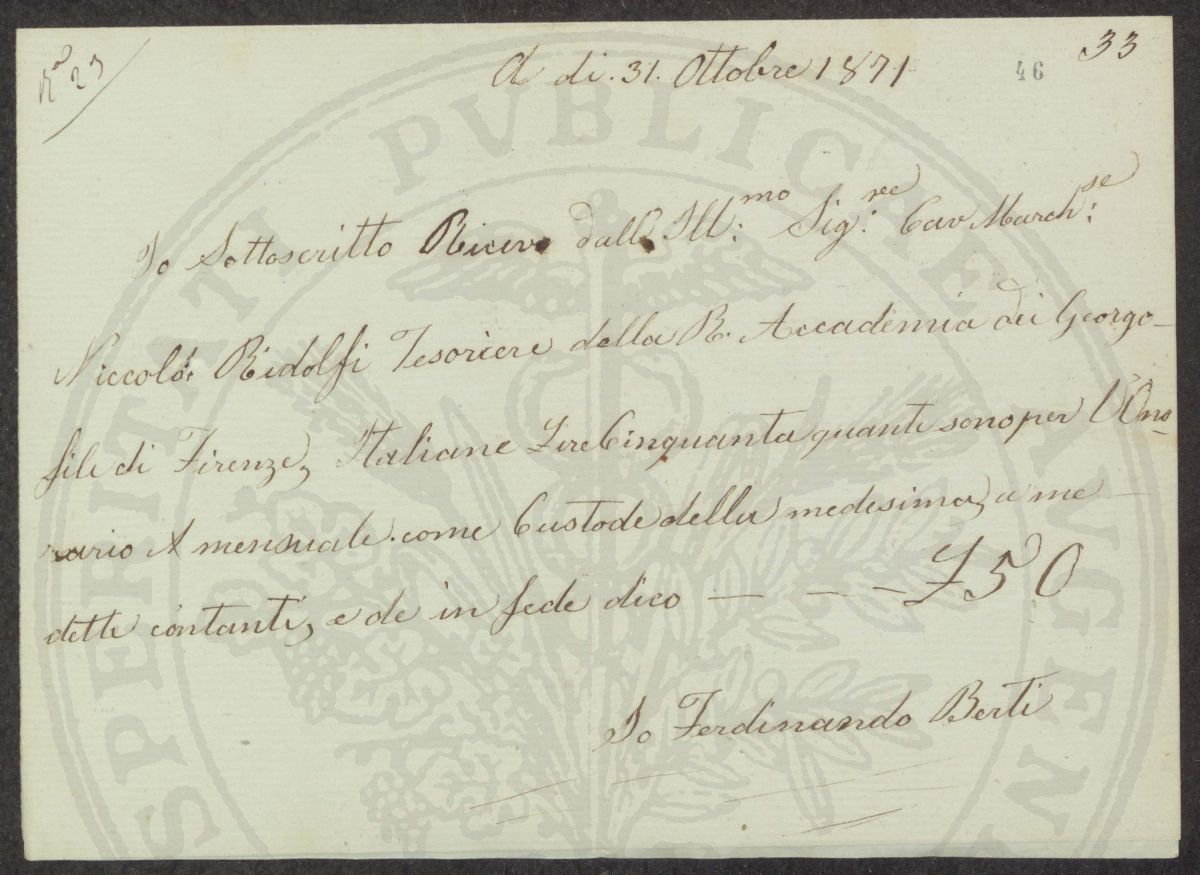 N.º 23
A di. 31. Ottobre 1871
46
33
Io Sottoscritto Ricevo dall Ill:mo Sig:re Cav March:se
Niccolò: Ridolfi Tesoriere della R. Accademia dei Georgo-
fili di Firenze, Italiane Lire Cinquanta quante sono per l'Ono
rario A mensuale. come Custode della medesima, a me
detti contanti, e de in fede dico — — — £50
Io Ferdinando Berti
PROSPERITATI PVBLICAE AVGEN